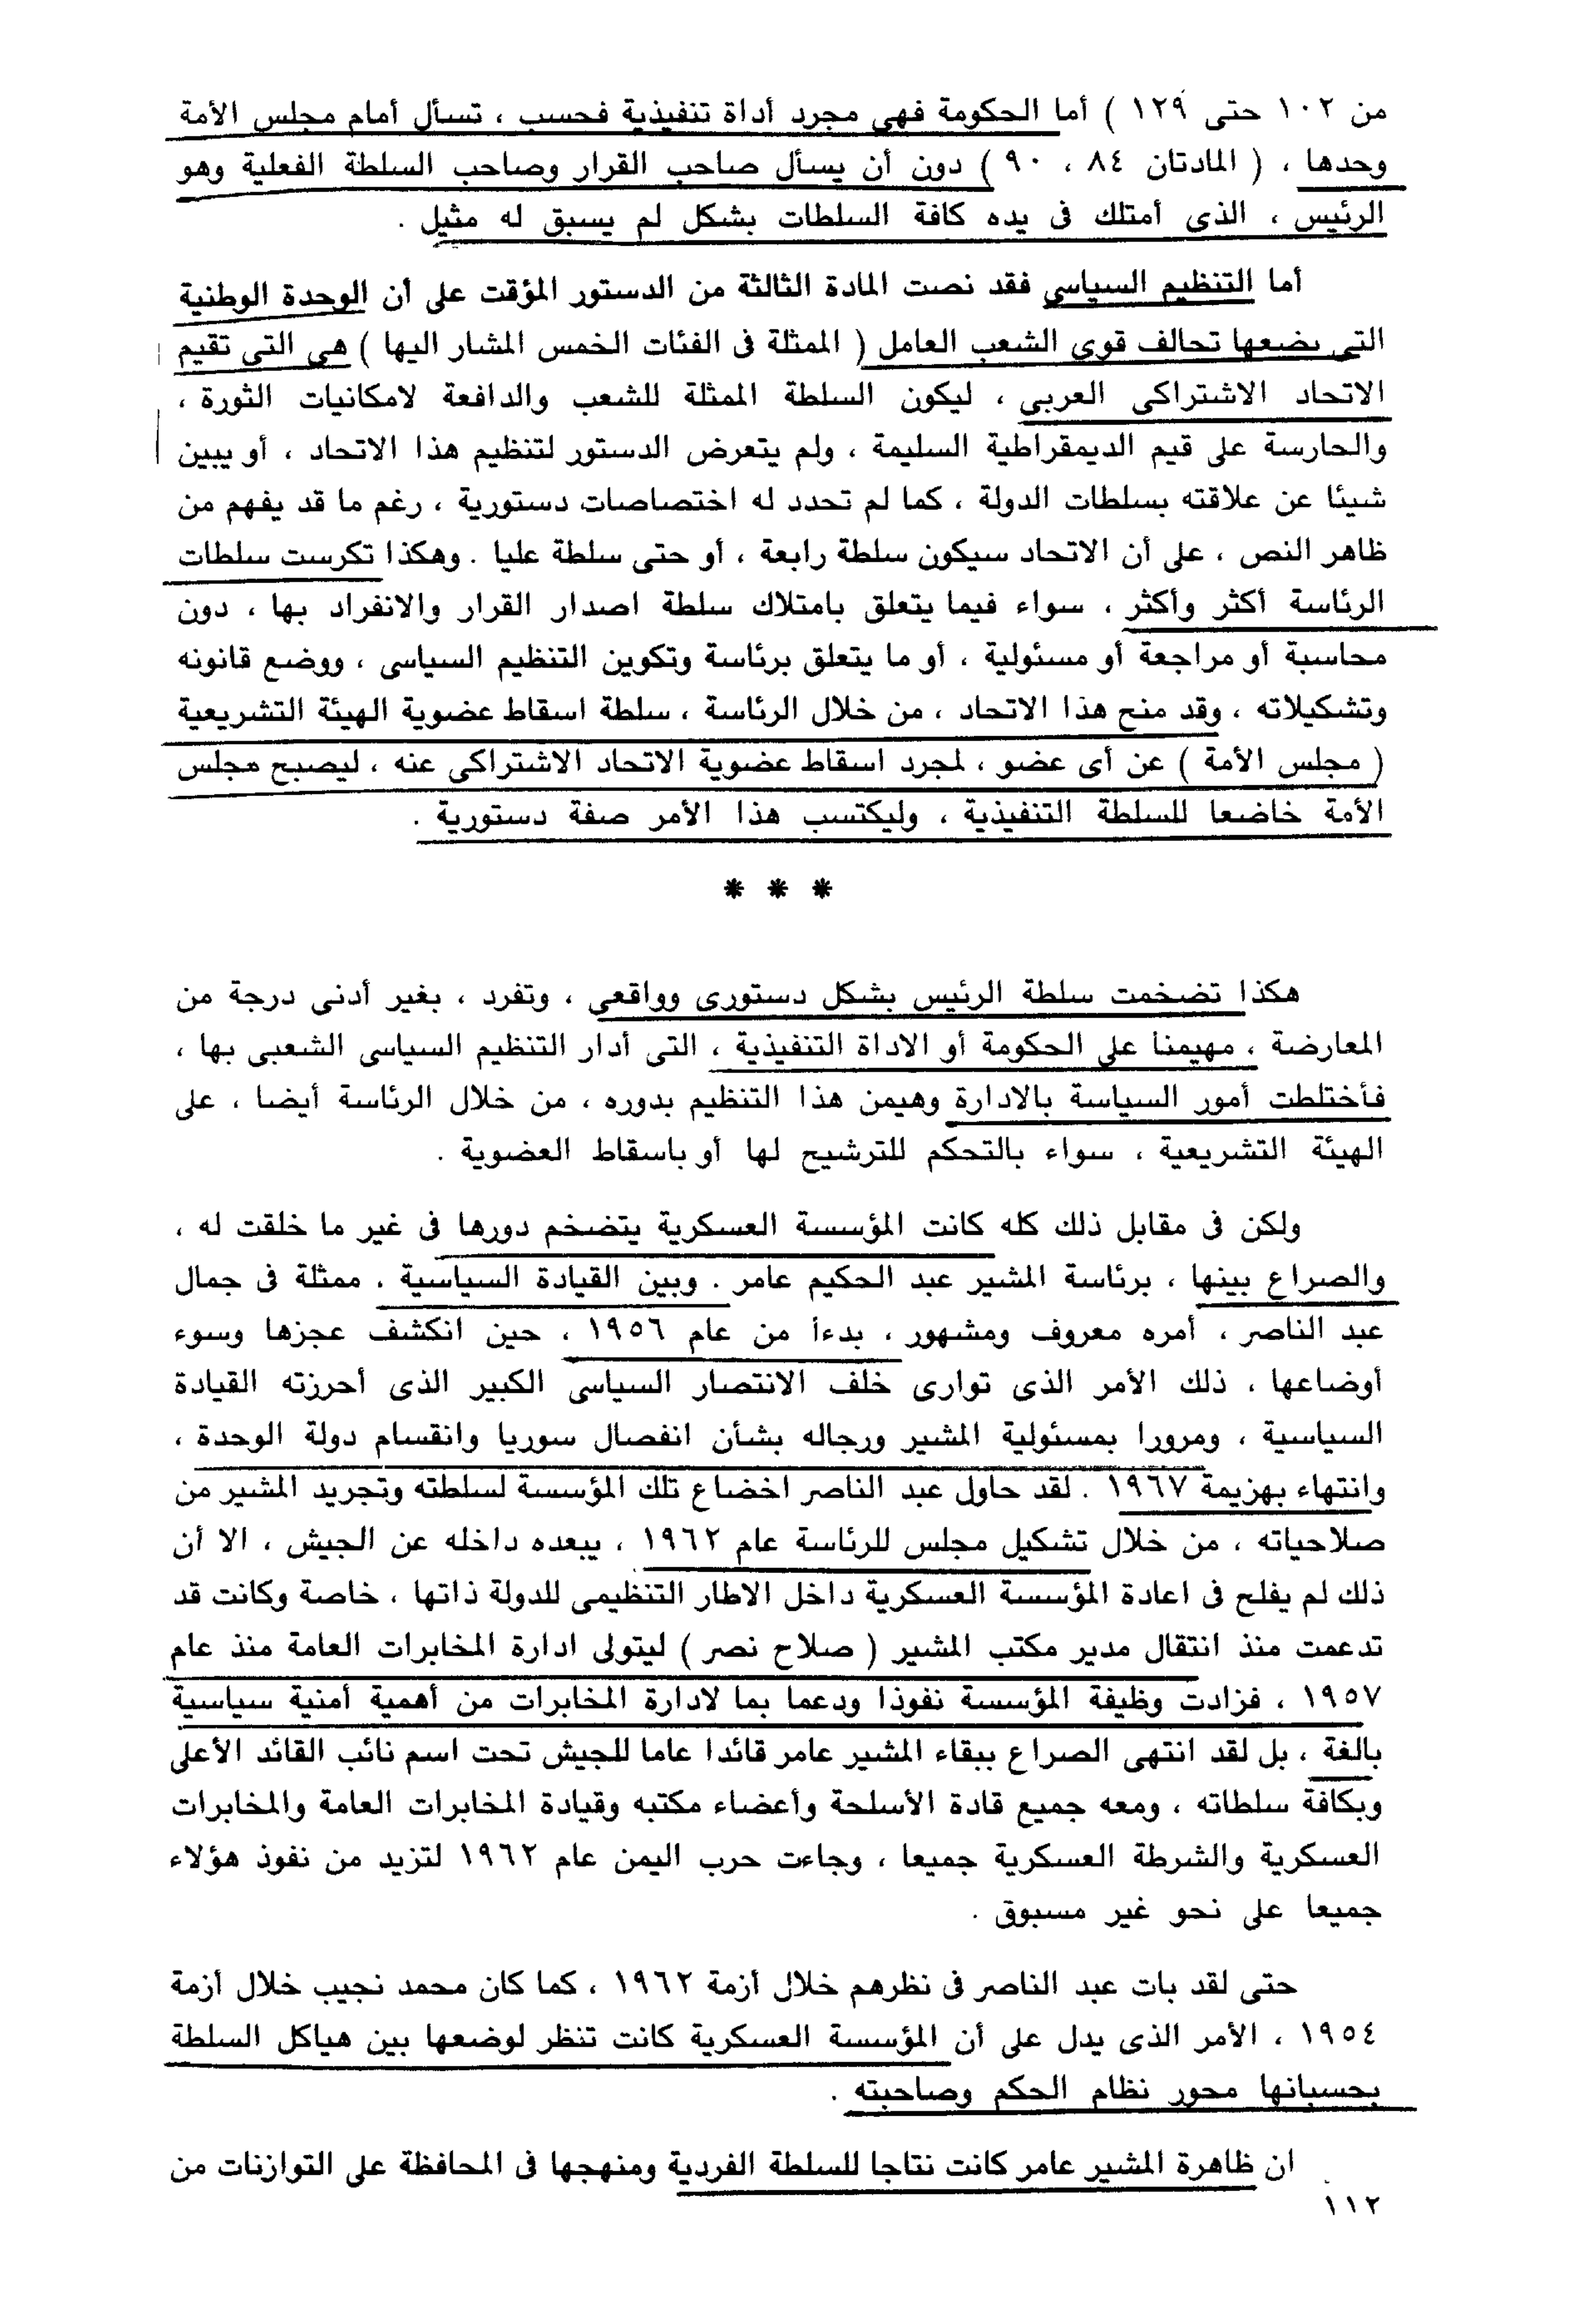 من ١٠٢ حتى ١٢٩ ) أما الحكومة فهى مجرد أداة تنفيذية فحسب ، تسأل أمام مجلس الأمة
وحدها ، ( المادتان ٨٤ ، ٩٠ ) دون أن يسأل صاحب القرار وصاحب السلطة الفعلية وهو
الرئيس ، الذى أمتلك فى يده كافة السلطات بشكل لم يسبق له مثيل .
أما التنظيم السياسى فقد نصت المادة الثالثة من الدستور المؤقت على أن الوحدة الوطنية
التى يضعها تحالف قوى الشعب العامل ( الممثلة فى الفئات الخمس المشار اليها ) هى التى تقيم
الاتحاد الاشتراكى العربى ، ليكون السلطة الممثلة للشعب والدافعة لامكانيات الثورة ،
والحارسة على قيم الديمقراطية السليمة ، ولم يتعرض الدستور لتنظيم هذا الاتحاد ، أو يبين
شيئا عن علاقته بسلطات الدولة ، كما لم تحدد له اختصاصات دستورية ، رغم ما قد يفهم من
ظاهر النص ، على أن الاتحاد سيكون سلطة رابعة ، أو حتى سلطة عليا . وهكذا تكرست سلطات
الرئاسة أكثر وأكثر ، سواء فيما يتعلق بامتلاك سلطة اصدار القرار والانفراد بها ، دون
محاسبة أو مراجعة أو مسئولية ، أو ما يتعلق برئاسة وتكوين التنظيم السياسى ، ووضع قانونه
وتشكيلاته ، وقد منح هذا الاتحاد ، من خلال الرئاسة ، سلطة اسقاط عضوية الهيئة التشريعية
( مجلس الأمة ) عن أى عضو ، لمجرد اسقاط عضوية الاتحاد الاشتراكى عنه ، ليصبح مجلس
الأمة خاضعا للسلطة التنفيذية ، وليكتسب هذا الأمر صفة دستورية .
* * *
هكذا تضخمت سلطة الرئيس بشكل دستورى وواقعى ، وتفرد ، بغير أدنى درجة من
المعارضة ، مهيمنا على الحكومة أو الاداة التنفيذية ، التى أدار التنظيم السياسى الشعبى بها ،
فأختلطت أمور السياسة بالادارة وهيمن هذا التنظيم بدوره ، من خلال الرئاسة أيضا ، على
الهيئة التشريعية ، سواء بالتحكم للترشيح لها أو باسقاط العضوية .
ولكن فى مقابل ذلك كله كانت المؤسسة العسكرية يتضخم دورها فى غير ما خلقت له ،
والصراع بينها ، برئاسة المشير عبد الحكيم عامر . وبين القيادة السياسية ، ممثلة فى جمال
عبد الناصر ، أمره معروف ومشهور ، بدءأ من عام ١٩٥٦ ، حين انكشف عجزها وسوء
أوضاعها ، ذلك الأمر الذى توارى خلف الانتصار السياسى الكبير الذى أحرزته القيادة
السياسية ، ومرورا بمسئولية المشير ورجاله بشأن انفصال سوريا وانقسام دولة الوحدة ،
وانتهاء بهزيمة ١٩٦٧ . لقد حاول عبد الناصر اخضاع تلك المؤسسة لسلطته وتجريد المشير من
صلاحياته ، من خلال تشكيل مجلس للرئاسة عام ١٩٦٢ ، يبعده داخله عن الجيش ، الا أن
ذلك لم يفلح فى اعادة المؤسسة العسكرية داخل الاطار التنظيمى للدولة ذاتها ، خاصة وكانت قد
تدعمت منذ انتقال مدير مكتب المشير ( صلاح نصر ) ليتولى ادارة المخابرات العامة منذ عام
١٩٥٧ ، فزادت وظيفة المؤسسة نفوذا ودعما بما لادارة المخابرات من أهمية أمنية سياسية
بالغة ، بل لقد انتهى الصراع ببقاء المشير عامر قائدا عاما للجيش تحت اسم نائب القائد الأعلى
وبكافة سلطاته ، ومعه جميع قادة الأسلحة وأعضاء مكتبه وقيادة المخابرات العامة والمخابرات
العسكرية والشرطة العسكرية جميعا ، وجاءت حرب اليمن عام ١٩٦٢ لتزيد من نفوذ هؤلاء
جميعا على نحو غير مسبوق .
حتى لقد بات عبد الناصر فى نظرهم خلال أزمة ١٩٦٢ ، كما كان محمد نجيب خلال أزمة
١٩٥٤ ، الأمر الذى يدل على أن المؤسسة العسكرية كانت تنظر لوضعها بين هياكل السلطة
بحسبانها محور نظام الحكم وصاحبته .
ان ظاهرة المشير عامر كانت نتاجا للسلطة الفردية ومنهجها فى المحافظة على التوازنات من
١١٢